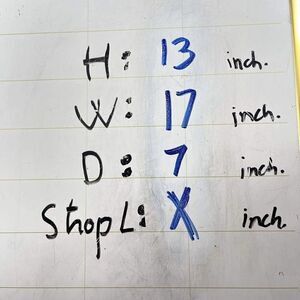 H: 13 inch.
W: 17 inch.
D: 7 inch.
Strop L: X inch.